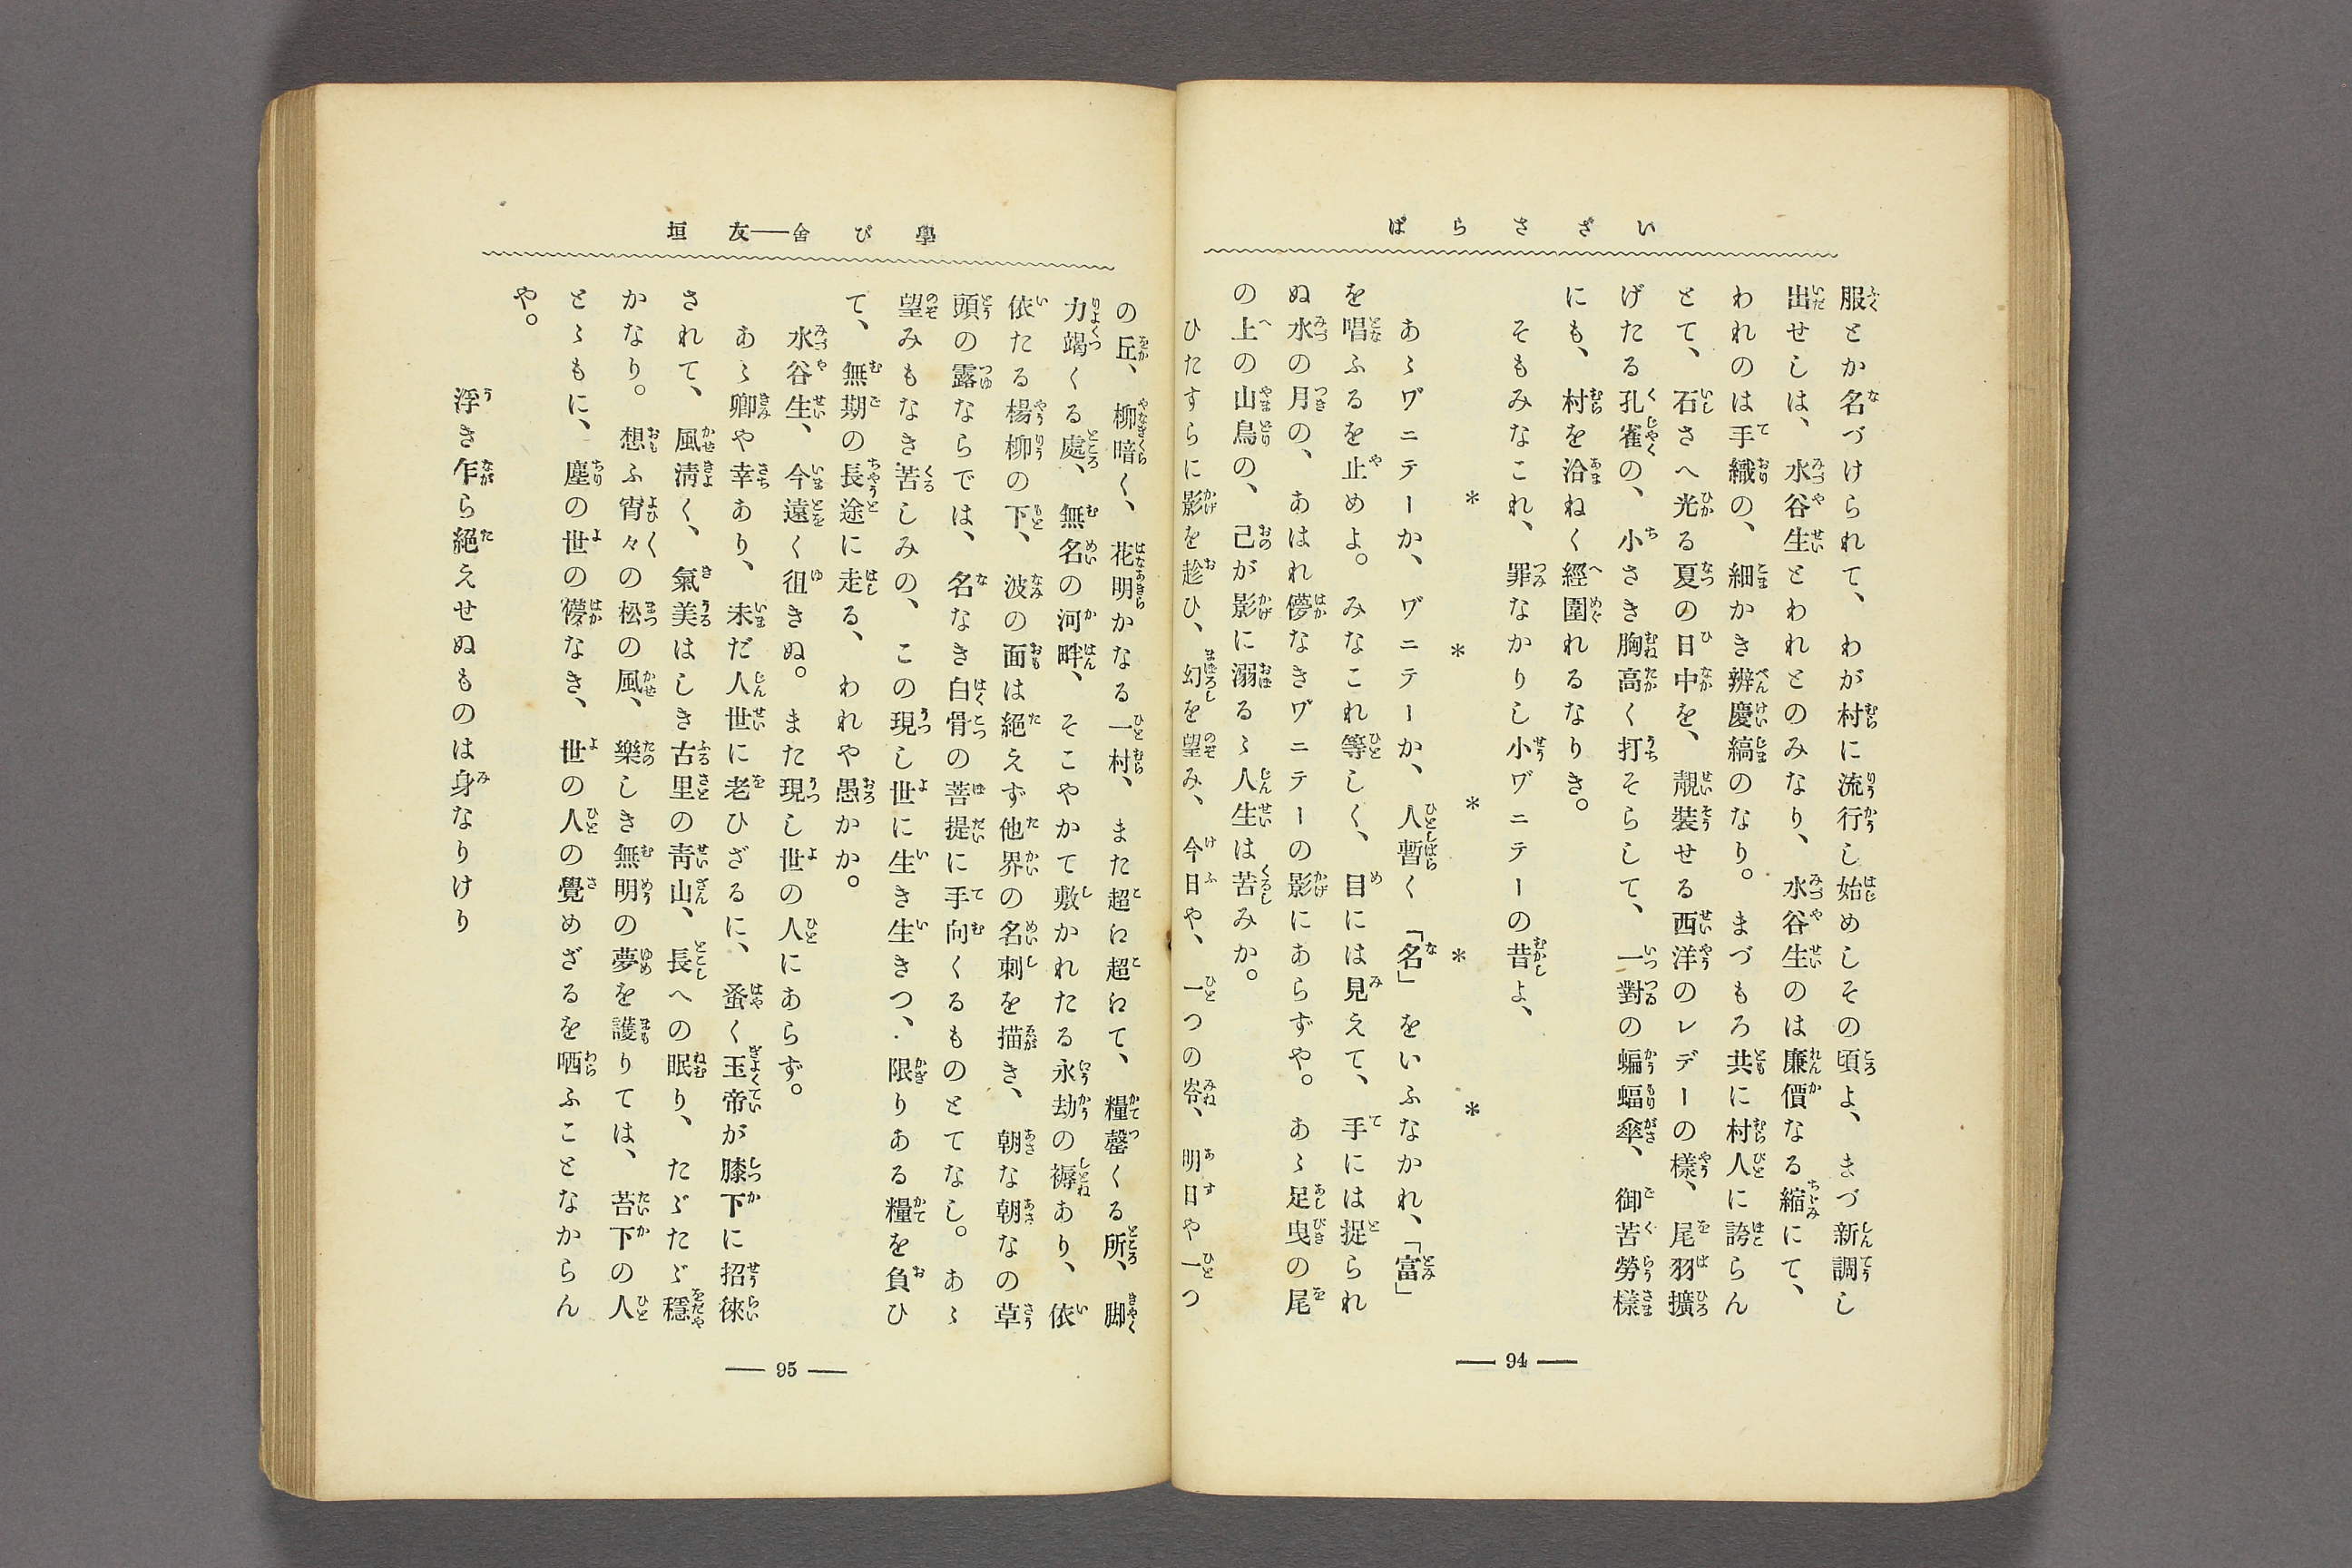 いざさらば
服とか名づけられて、わが村に流行し始めしその頃よ、まづ新調し
出せしは、水谷生とわれとのみなり、水谷生のは廉價なる縮にて、
われのは手織の、細かき辨慶縞のなり。まづもろ共に村人に誇らん
とて、石さへ光る夏の日中を、靚裝せる西洋のレデーの樣、尾羽擴
げたる孔雀の、小さき胸高く打そらして、一對の蝙蝠傘、御苦勞樣
にも、村を洽ねく經圍れるなりき。
そもみなこれ、罪なかりし小ヷニテーの昔よ、
* * * * *
あゝヷニテーか、ヷニテーか、人暫く「名」をいふなかれ、「富」
を唱ふるを止めよ。みなこれ等しく、目には見えて、手には捉られ
ぬ水の月の、あはれ儚なきヷニテーの影にあらずや。あゝ足曳の尾
の上の山鳥の、己が影に溺るゝ人生は苦みか。
ひたすらに影を趁ひ、幻を望み、今日や、一つの峯、明日や一つ
― 94 ―
學び舍―友垣
の丘、柳暗く、花明かなる一村、また超え超えて、糧罄くる所、脚
力竭くる處、無名の河畔、そこやかて敷かれたる永劫の褥あり、依
依たる楊柳の下、波の面は絕えず他界の名刺を描き、朝な朝なの草
頭の露ならでは、名なき白骨の菩提に手向くるものとてなし。あゝ
望みもなき苦しみの、この現し世に生き生きつ、限りある糧を負ひ
て、無期の長途に走る、われや愚かか。
水谷生、今遠く徂きぬ。また現し世の人にあらず。
あゝ卿や幸あり、未だ人世に老ひざるに、蚤く玉帝が膝下に招徠
されて、風淸く、氣美はしき古里の靑山、長への眠り、たゞたゞ穩
かなり。想ふ宵々の松の風、樂しき無明の夢を護りては、苔下の人
とゝもに、塵の世の儚なき、世の人の覺めざるを哂ふことなからん
や。
浮き乍ら絕えせぬものは身なりけり
― 95 ―